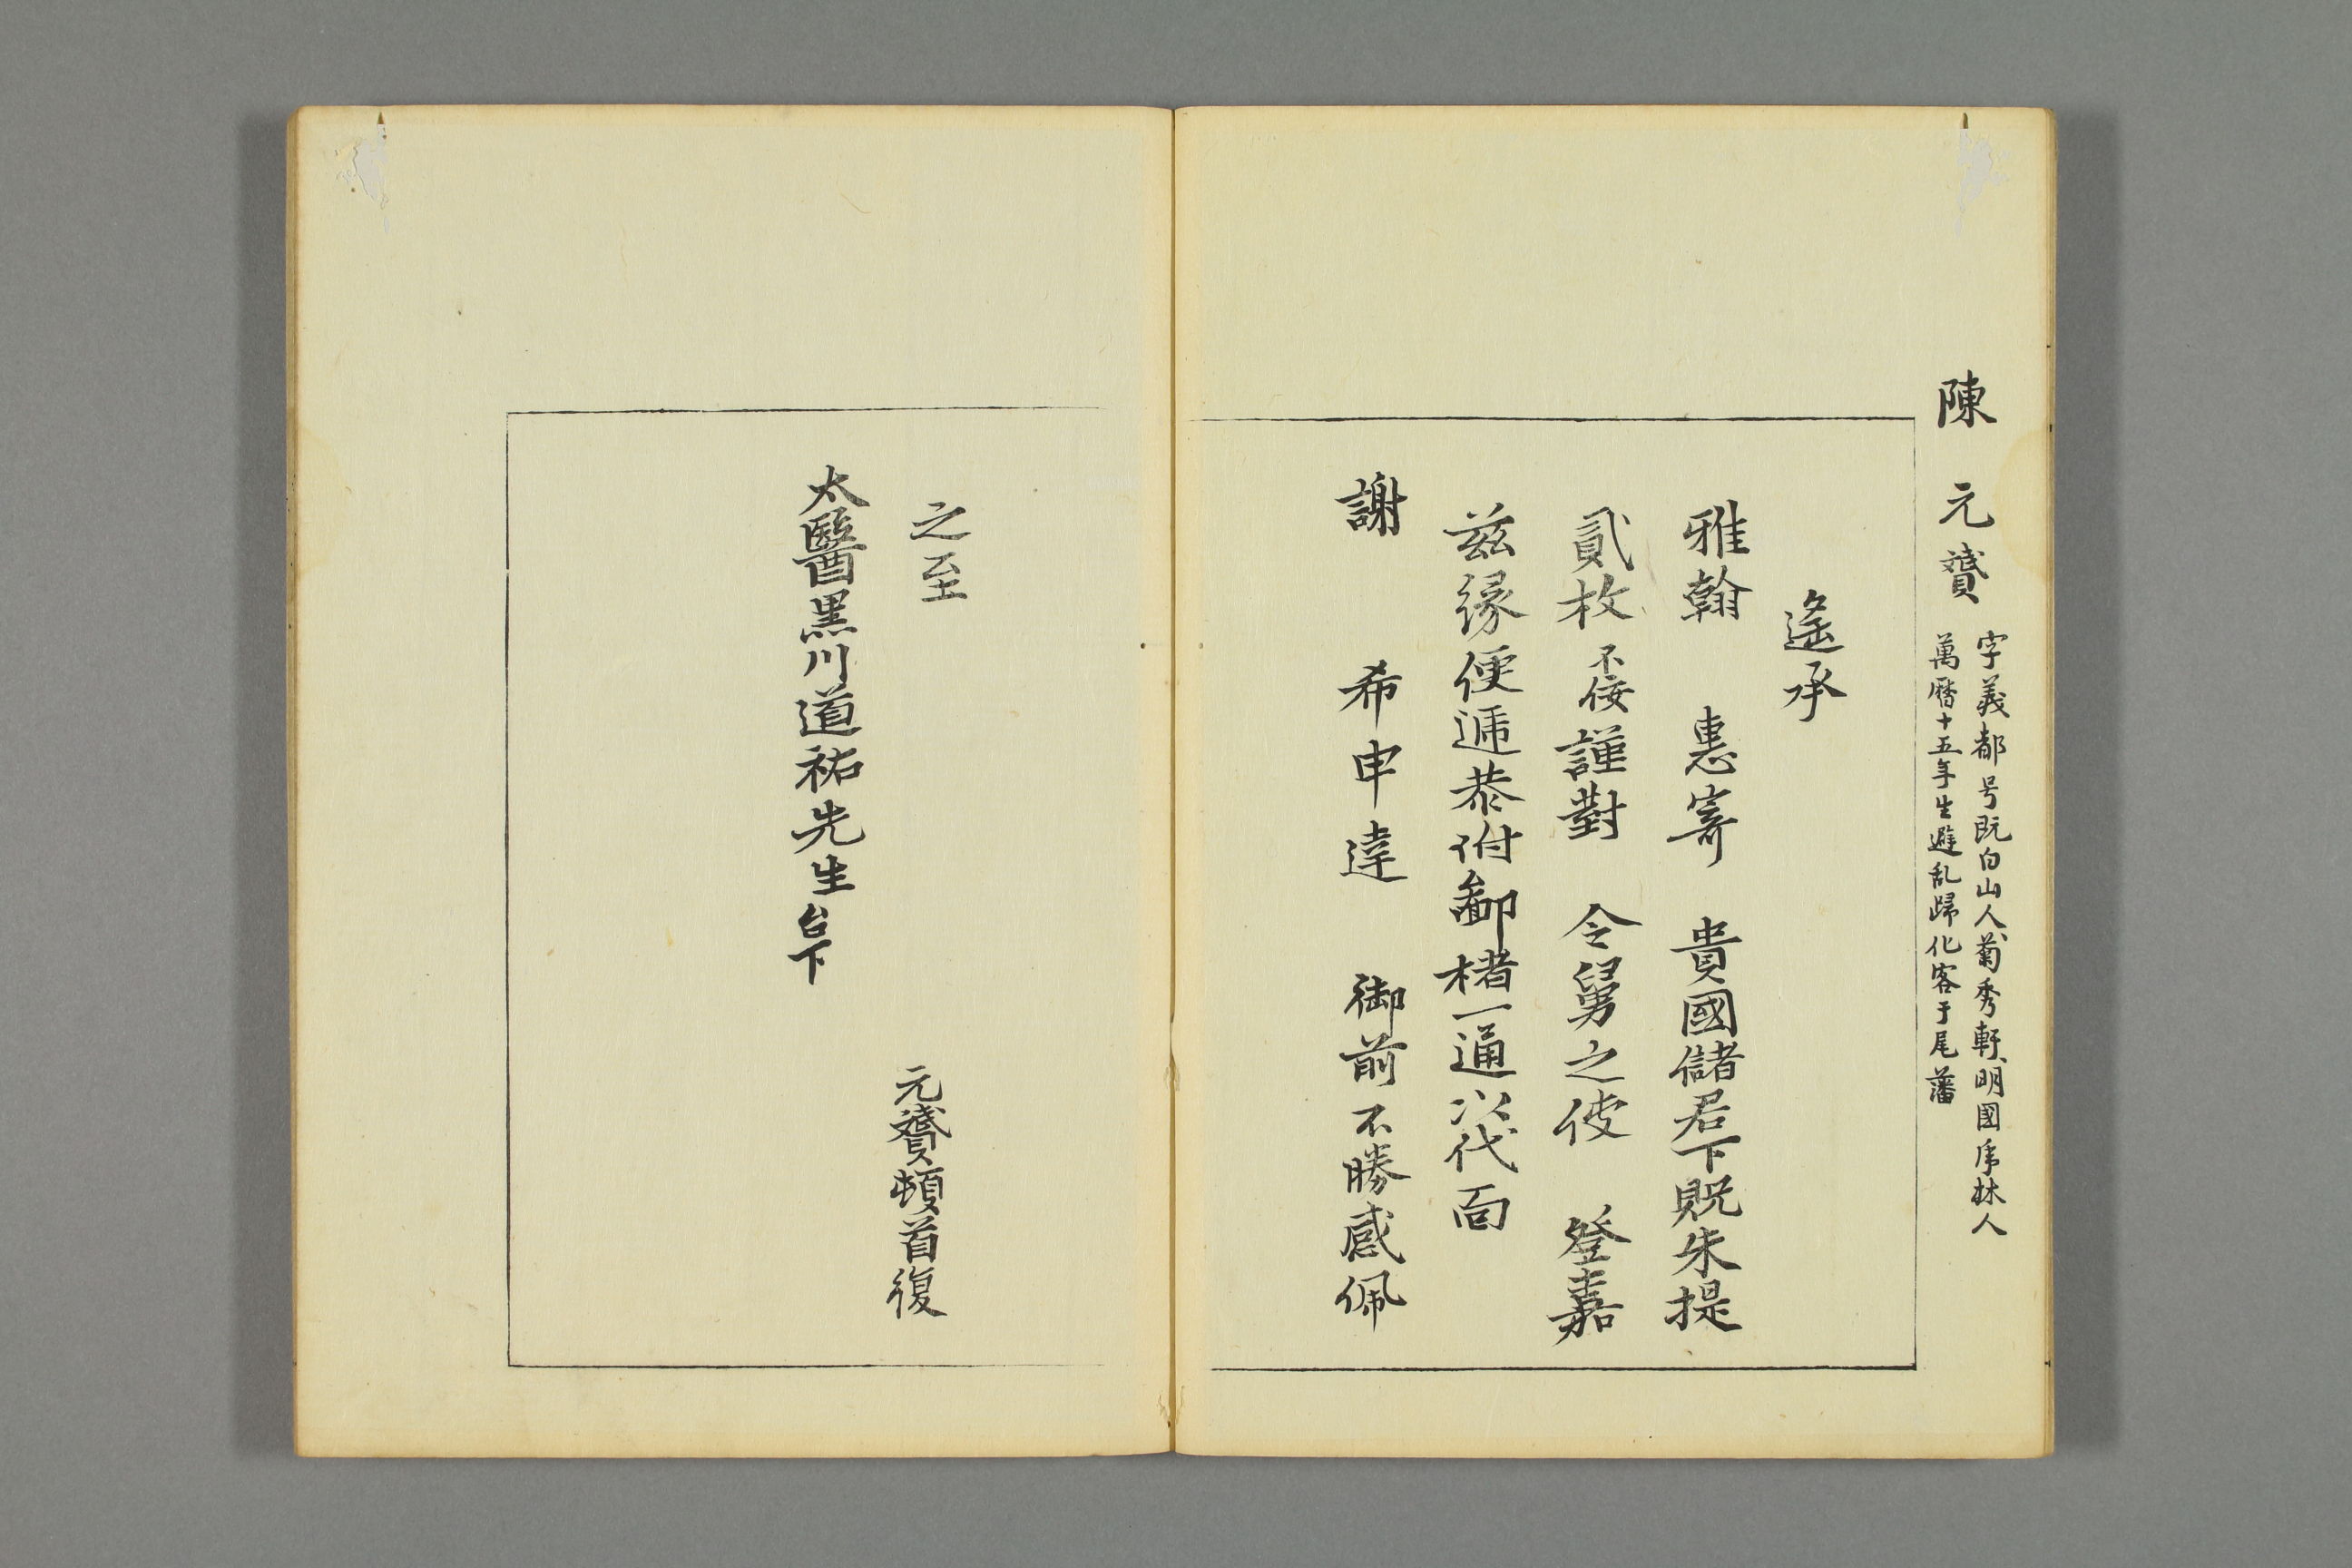 陳元贇
字義都号既白山人、菊秀軒、明國虎林人
萬暦十五年生避乱歸化客于尾藩
遙承
雅翰 惠寄 貴國儲君下貺朱提
貳枚不佞謹對 令舅之使 登嘉
茲緣便遞恭附鄙楮一通以代面
謝 希申達 御前不勝感佩
之至
元贇頓首復
太醫黒川道祐先生台下